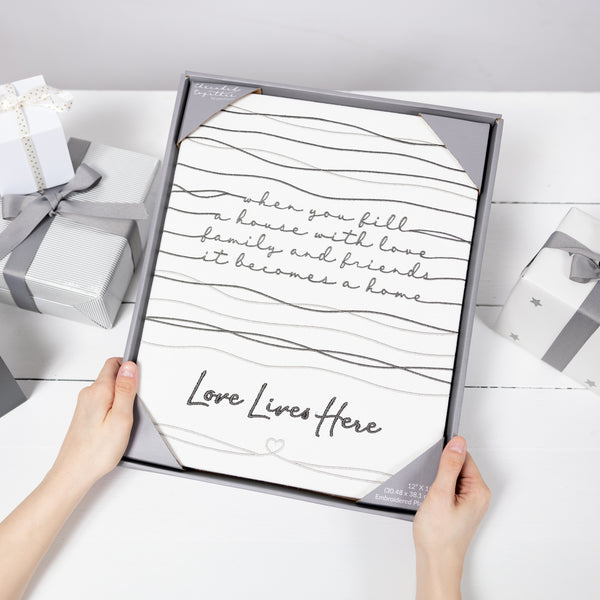 threaded
together
when you fill
a house with love
family and friends
it becomes a home
Love Lives Here
12" X 1
(30.48 x 38.1
Embroidered Pl